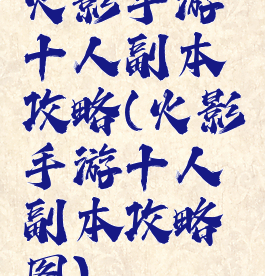 火影手游
十人副本
攻略(火影
手游十人
副本攻略
图)